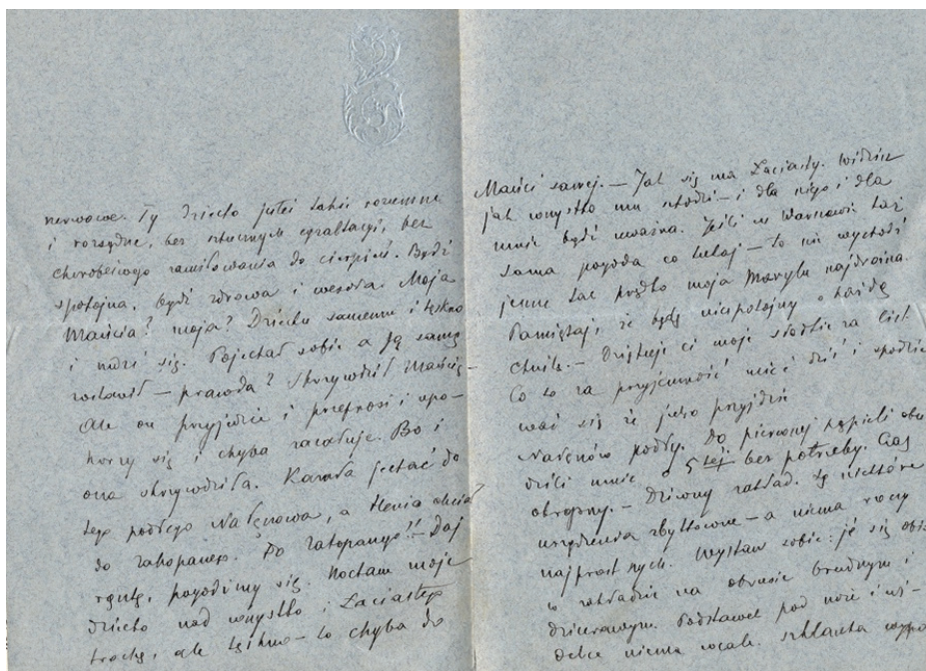 nerwowe. Ty Dziecko jesteś takie rozumne
i rozsądne, bez sztucznych egzaltacyi, bez
chorobliwego zamiłowania do cierpień. Bądź
spokojna, bądź zdrowa i wesoła. Moja
Mańcia? moja? Dziecku samemu i tęskno
i nudzi się. Pojechał sobie a Ją samą
zostawił — prawda? Skrzywdził Mańcię —
Ale on przyjedzie i przeprosi i upo-
korzy się i chyba zacałuje. Bo i
ona skrzywdziła. Kazała jechać do
tego podłego Nałęczowa, a Henia chciał
do Zakopanego. Do Zakopanego!! — Daj
rączkę, pogodzimy się. Kocham moje
dziecko nad wszystko i Łaciatego
trochę, ale tęskno — to chyba do
Mańci samej. — Jak się ma Łaciaty. Widzisz
jak wszystko mu szkodzi — i dla niego i dla
mnie bądź uważna. Jeśli w Warszawie taż
sama pogoda co tutaj — to nie wychodź
moja Maryla najdroższa.
Pamiętaj, że będę niespokojny o każdą
chwilę. — Dziękuję ci moje słodkie za list
Co to za przyjemność mieć dziś i spodzie
wać się że jutro przyjdzie
Nałęczów podły. Do pierwszej kąpieli obu
dzili mnie o 5tej bez potrzeby. Czas
okropny. — Dziwny zakład. Są niektóre
urządzenia zbytkowne — a niema rzeczy
najprostszych. Wystaw sobie: je się obia
w zakładzie na obrusie brudnym i
dziurawym. Podstawek pod noże i wi-
delce niema wcale. Szklanka